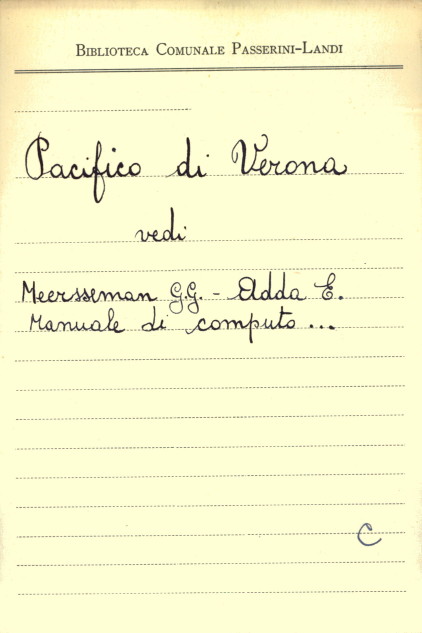 Biblioteca Comunale Passerini-Landi
Pacifico di Verona
vedi
Meersseman G.G. - Adda E.
Manuale di computo ...
C